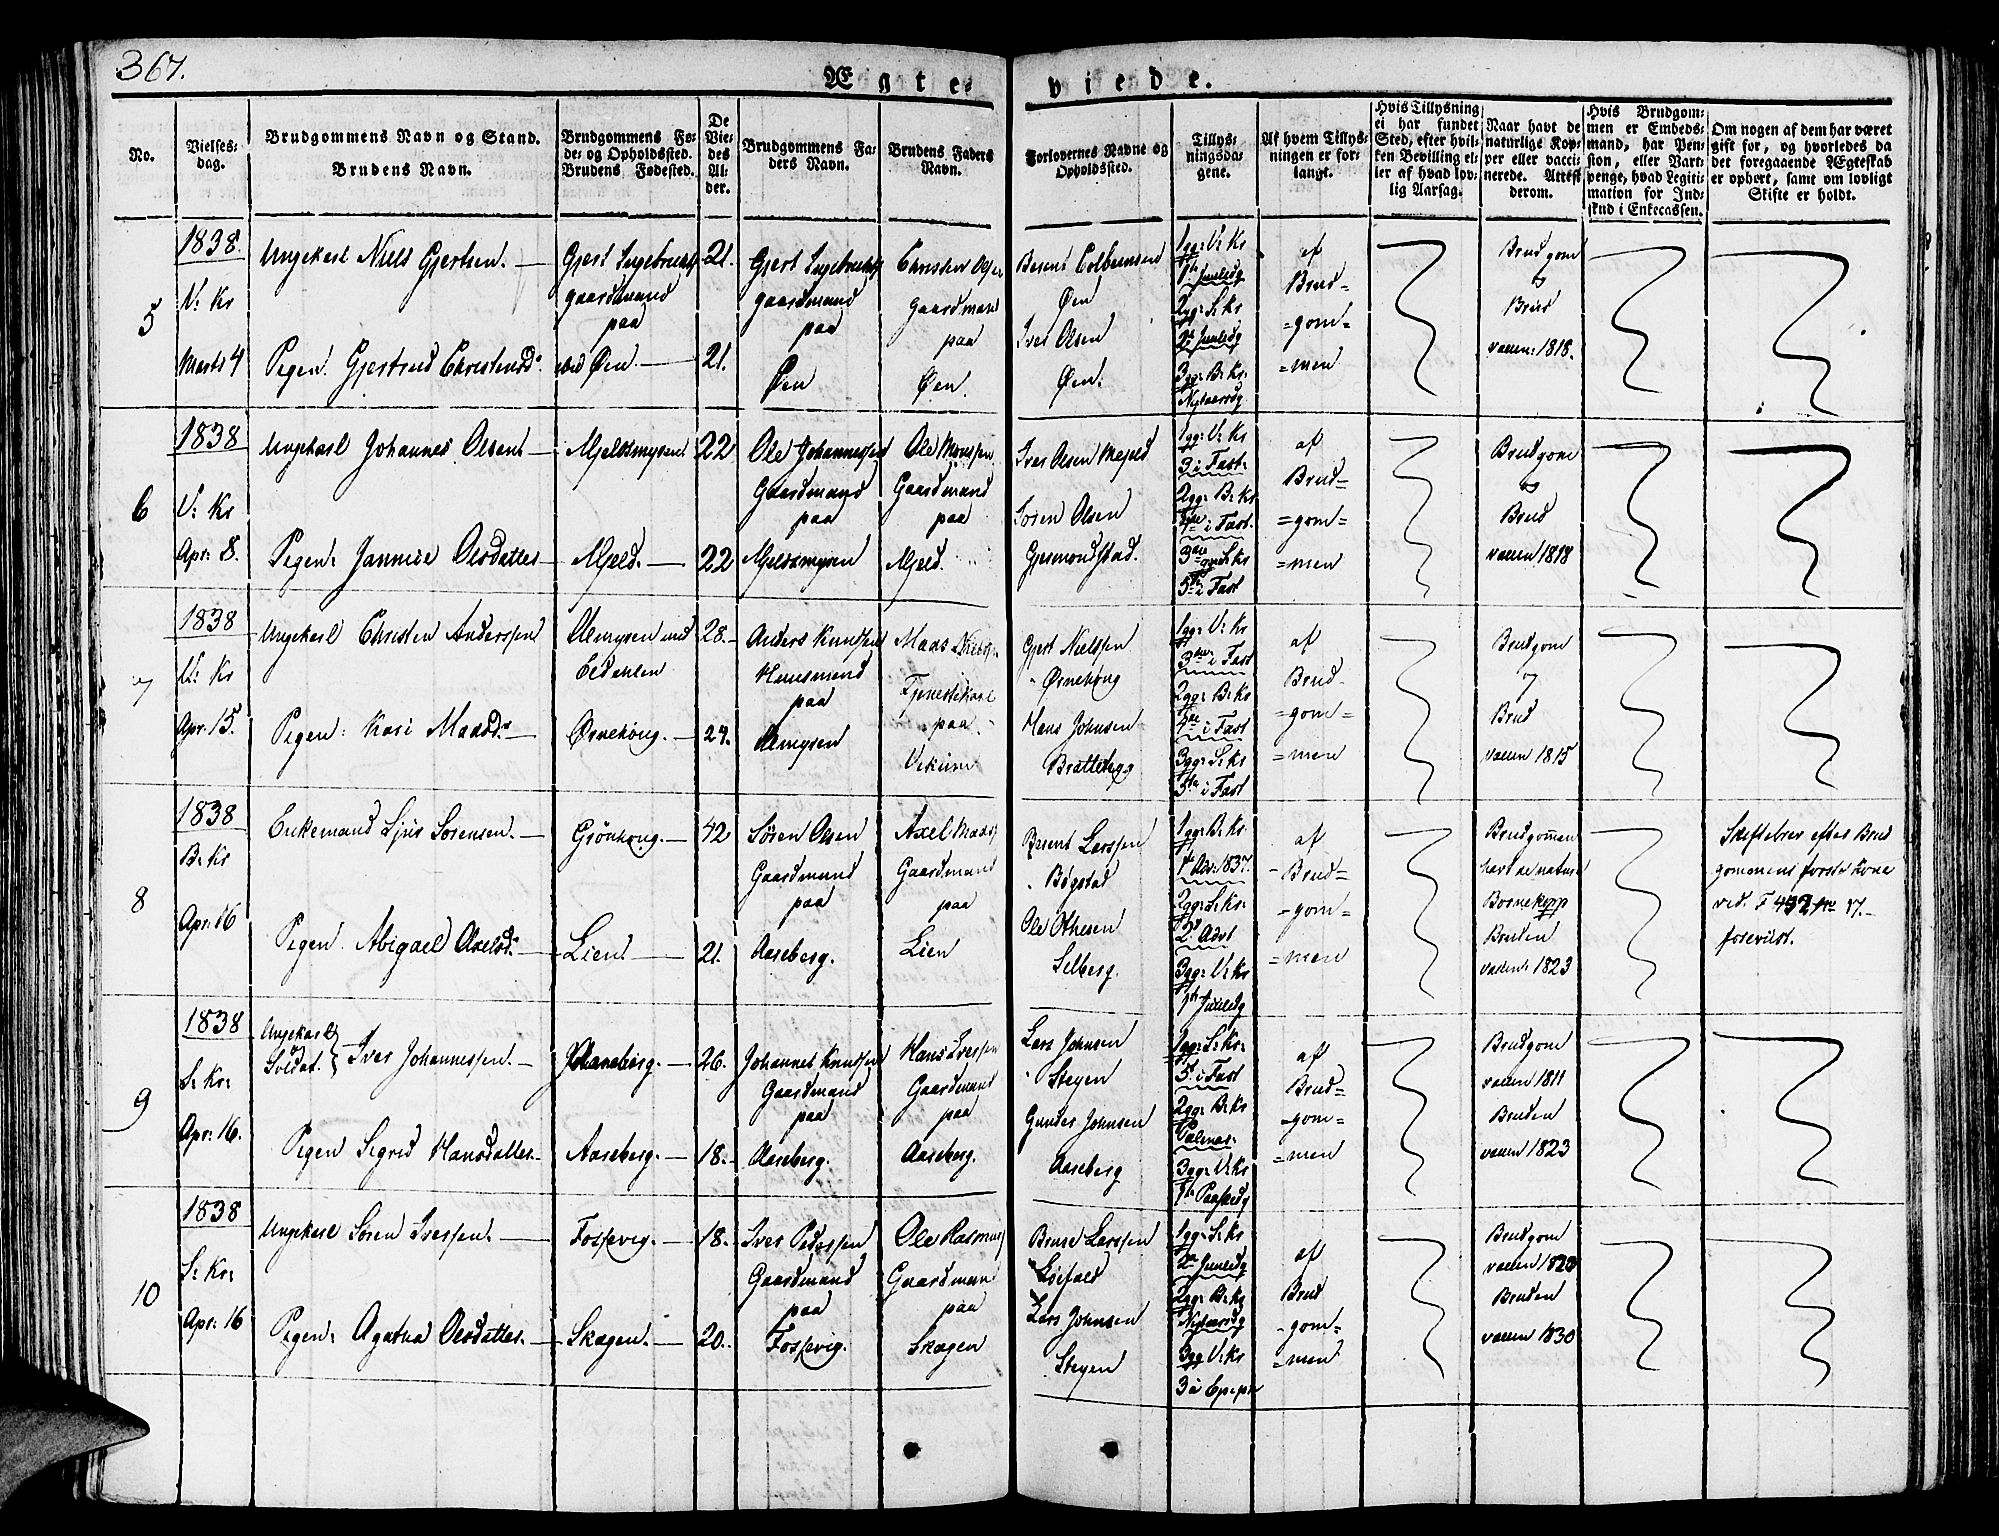 367.
Ægte-
viede.
No.
Vielses-
dag.
Brudgommens Navn og Stand.
Brudens Navn.
Brudgommens Fø-
de- og Opholdssted.
Brudens Fødested.
De
Vie-
des
Al-
der.
Brudgommens Fa-
ders Navn.
Brudens Faders
Navn.
Forlovernes Navne og
Opholdssted.
Tillys-
ningsda-
gene.
Af hvem Tillys-
ningen er for-
langt.
Hvis Tillysning
ei har fundet
Sted, efter hvil-
ken Bevilling el-
ler af hvad lov-
lig Aarsag.
Naar havt de
naturlige Kop-
per eller vacci-
nerede. Attest
derom.
Hvis Brudgom-
men er Embeds-
mand, har Pen-
sion, eller Vart-
penge, hvad Legiti-
mation for Ind-
skud i Enkecassen.
Om nogen af dem har været
gift før, og hvorledes da
det foregaaende Ægteskab
er ophørt, samt om lovligt
Skifte er holdt.
5
1838.
V: Kr
Marts 4
Ungekarl Niels Gjertsen.
Pigen. Gjertrud Christensd.
Gjert Ingebrechts
gaardmand
paa
Øen.
21.
21.
Gjert Ingebrechts
gaardmand
paa
Øen
Christen
gaardmand
paa
Øen.
Øen
Iver Olsen
Øen.
1gg: V: Kr
1ste Juuledg
2gg: S: Kr
2d Juuledg
3gg: B: Kr:
Nytaarsdg.
af
Brud=
=gom=
=men
Brudgom
og
Brud
vaccin: 1818.
6
1838
V: Kr
Apr: 8.
Ungekarl Johannes Olsen
Pigen: Olesdatter
Mjeldsmyren
Mjeld.
22
22
Ole Johannessen
Gaardmand
paa
Mjeldsmyren
Ole Monssen
Gaardmand
paa
Mjeld.
Iver Olsen Mjeld
Sören Olsen
Gjermondstad.
1gg: V: Kr
3 i Fast:
2gg: B: Kr
4de i Fast.
3die S: Kr
5te i Fast
af
Brud=
=gom=
=men
Brudgom
og
Brud
vaccin 1818
7
1838
V: Kr
Apr: 15.
Ungekarl Christen Anderssen
Pigen: Kari Madsd:
Almyren
Ørnehoug.
28.
24.
Anders Knudsen
Huusmand
paa
Almyren
Mads
Tjenestekarl
paa
Gjert Nielssen
Ørnehoug
Hans Johnsen
Brattehog
1gg: V: Kr
3die i Fast
2gg: B: Kr
4de i Fast
3gg: S: Kr
5te i Fast
af
Brud-
=gom=
=men
Brudgom
og
Brud
vaccin 1815
8
1838
B: Kr
Apr: 16
Enkemand Sörensen.
Pigen. Abigael Axelsd:
Grönhoug.
Lien
42
21.
Sören Olsen
Gaardmand
paa
Aaseberg.
Axel Mads
Gaardmand
paa
Lien
Berent Larssen
Bögstad
Ole Othesen
Selberg.
1gg: B: Kr.
1ste Adv: 1837.
2gg: S: Kr:
2d Advt
3gg: V: Kr
1ste Juuledg
af
Brud=
=gom=
=men
Brudgommen
havt de naturl
Börnekopp
Bruden
vaccin: 1823
Skiftebrev efter Brud
gommens første Kone
ved. F 432
foreviist.
9
1838
S: Kr:
Apr: 16.
Ungekarl
Soldat. } Iver Johannessen.
Pigen Sigrid Hansdatter
Aaseberg.
Aaseberg.
26.
18.
Johannes Knudsen
Gaardmand
paa
Aaseberg.
Hans Iversen
Gaardmand
paa
Aaseberg.
Lars Johnsen
Steyen
Gunder Johnsen
Aaseberg
1gg: S: Kr:
5t i Fast
2gg: B: Kr
Palmes:
3gg: V: Kr
1ste Paaskedg
af
Brud=
-gom=
=men
Brudgom
vaccin 1811
Bruden
vaccin 1823
10
1838
S: Kr:
Apr: 16
Ungekarl Sören Iverssen.
Pigen: Agatha Olesdatter.
Fossevig.
Skogen.
18.
20.
Iver Pederssen
Gaardmand
paa
Fossevig.
Ole Rasmus
Gaardmand
paa
Skogen
Larssen
Lars Johnsen
Steyen
1gg: S: Kr
2d Juuledg
2gg: B: Kr
Nytaarsdg
3gg V: Kr
af
Brud
-gom=
=men
Brudgom
vaccin 1820
Bruden
vaccin 1830